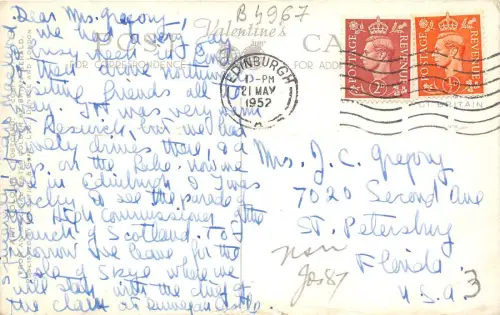 B4967
Dear Mrs. Gregory,
we had a very
busy week in Eng
then drove north
friends all the
way. It was very
Keswick, but we had
lovely drives there, & a
on the Lake. Now we
are in Edinburgh & I was
lucky to see the parade of
the High Commissioner of the
Church of Scotland. To-
morrow we leave for the
Isle of Skye where we
will stay with the chief of
the clan at Dunvegan Castle.
Valentine's
POST CA
FOR CORRESPONDENCE
FOR ADD
EDINBURGH
-PM
21 MAY
1952
POSTAGE REVENUE
2D
POSTAGE REVENUE
½D
BRITAIN
Mrs. J. C. Gregory
7020 Second Ave
St. Petersburg
Florida
U.S.A.
3